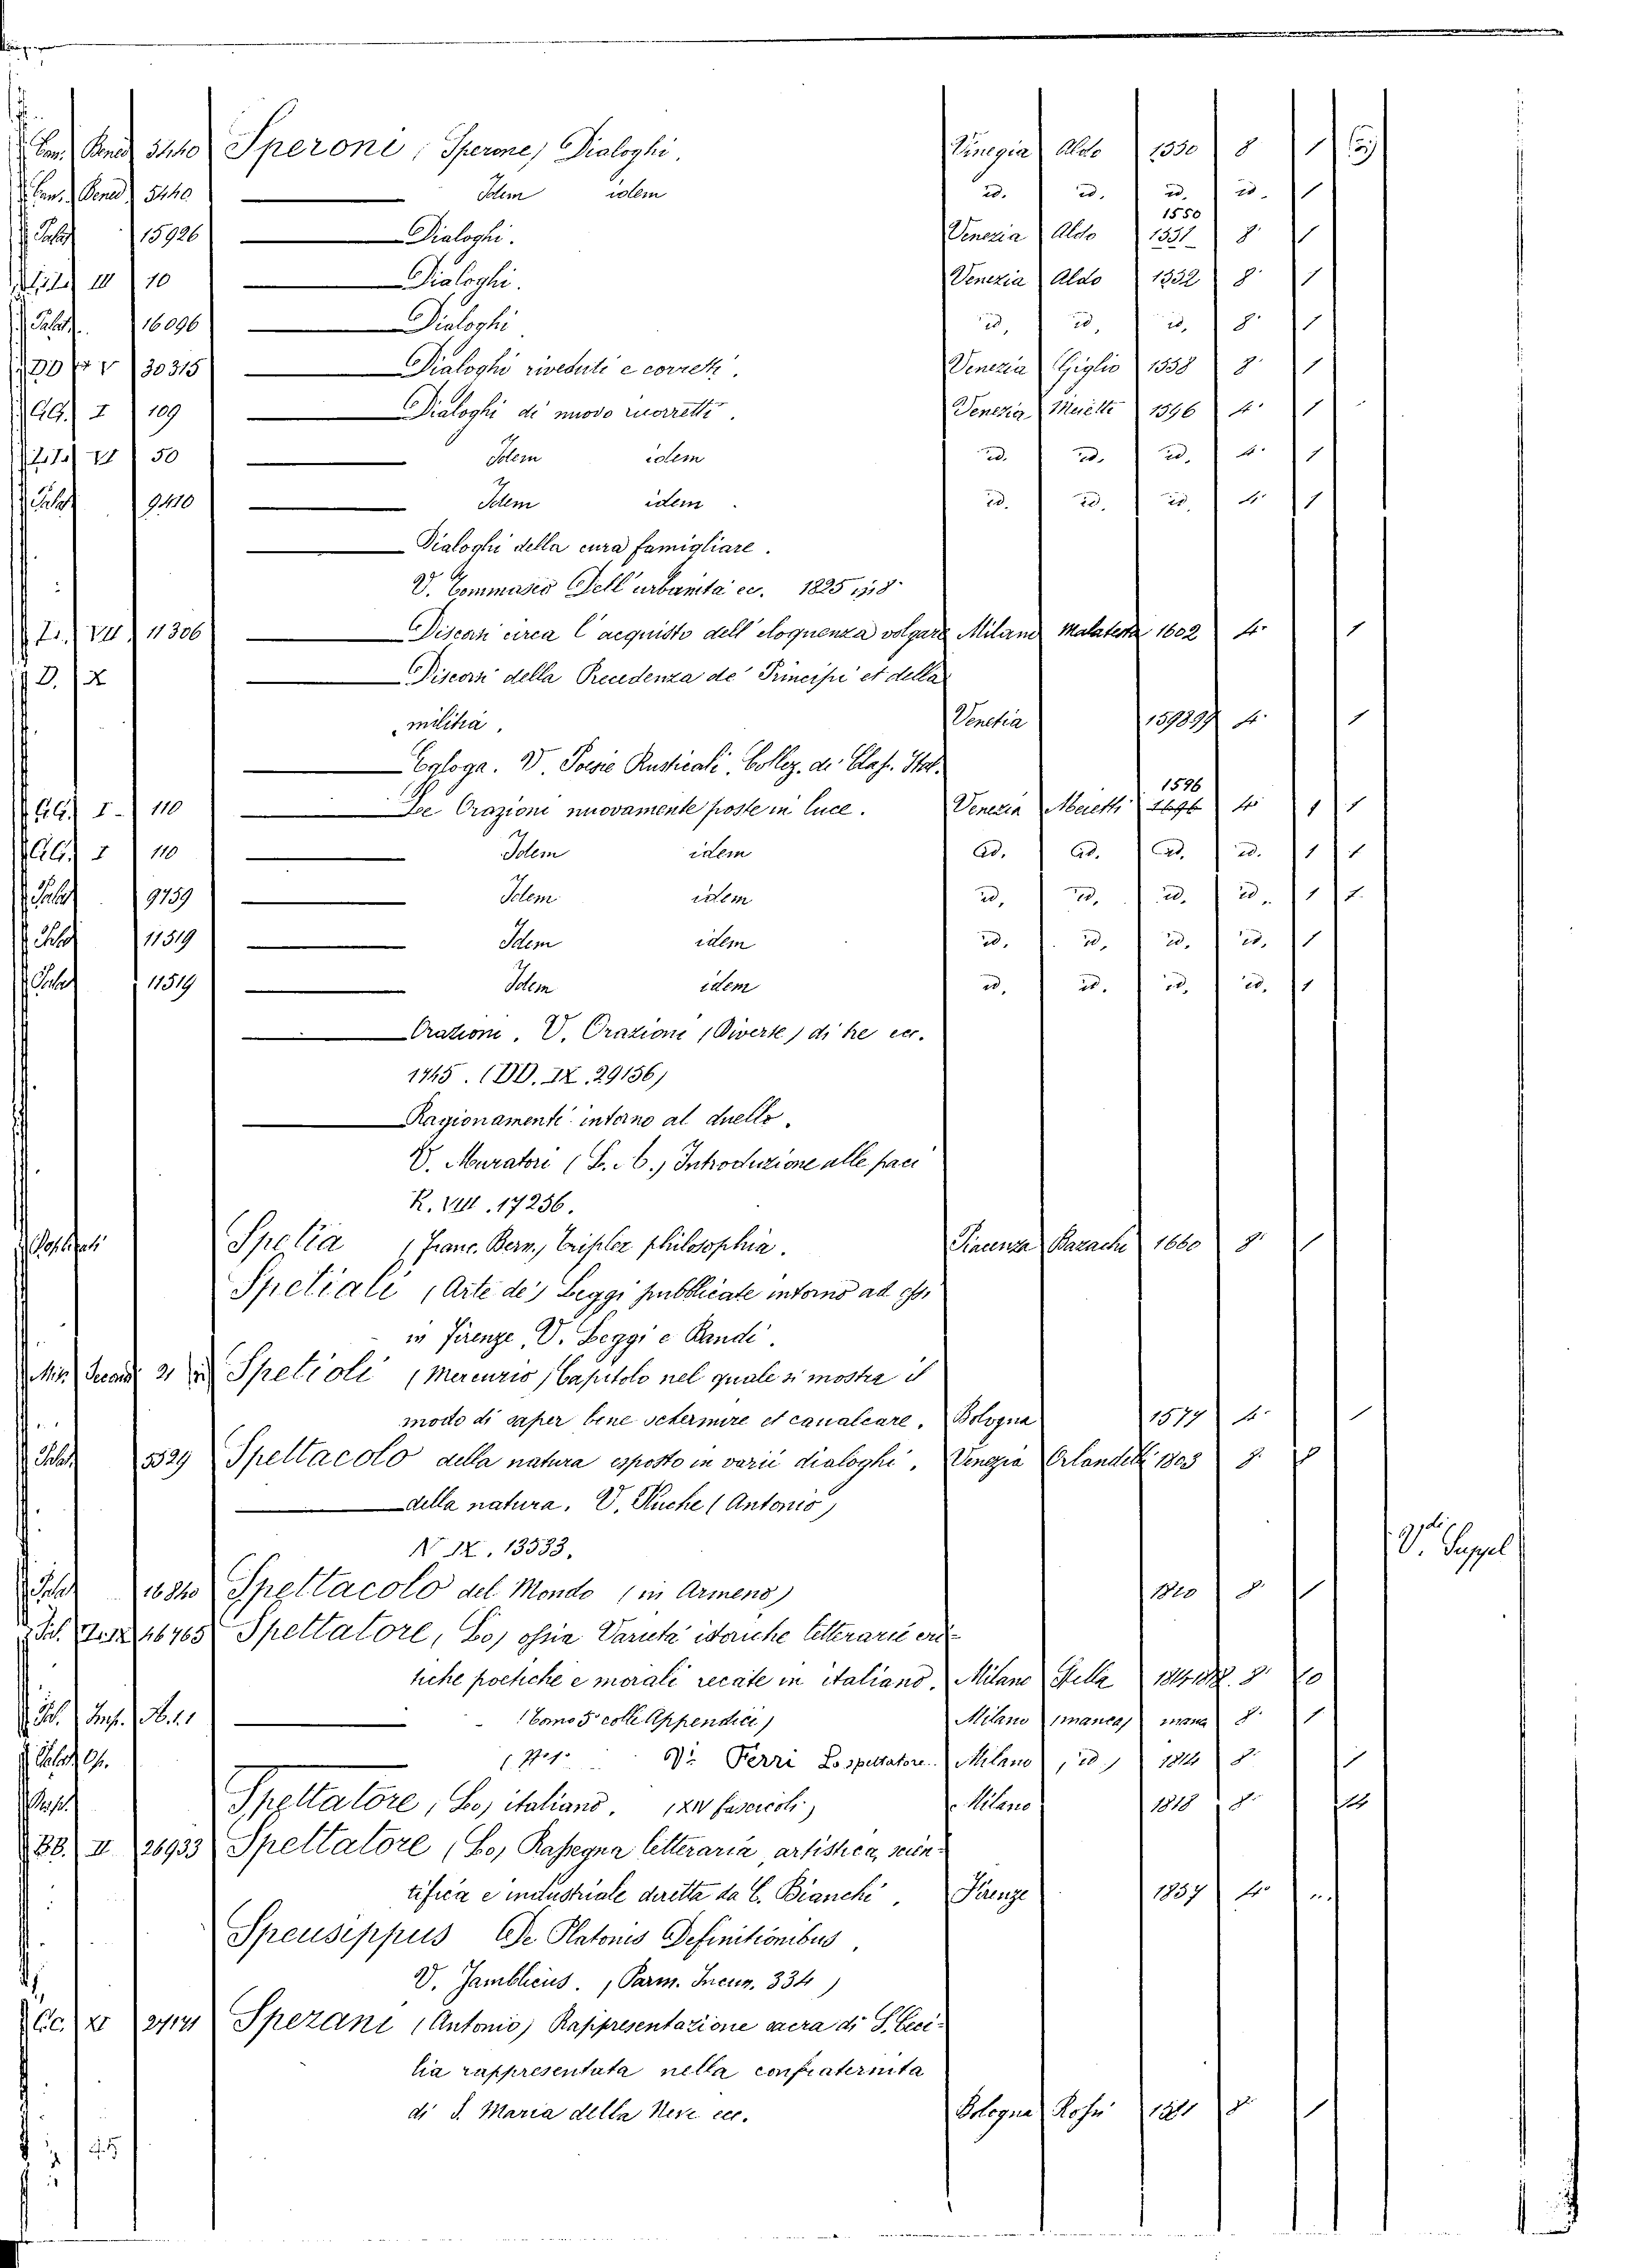 Bened 5440 Speroni (Sperone) Dialoghi. Vinegia Aldo 1550 8 1
Bened 5440 Idem idem id. id. id. id. 1
Palat 15926 Dialoghi. Venezia Aldo 1550 1551 8 1
III 10 Dialoghi. Venezia Aldo 1552 8 1
Palat. 16096 Dialoghi id. id. id. 8 1
DD V 30315 Dialoghi riveduti e corretti. Venezia Giglio 1558 8 1
GG. I 109 Dialoghi di nuovo ricorretti. Venezia Meietti 1596 4 1
VI 50 Idem idem id. id. id. 4 1
Palat 9410 Idem idem. id. id. id. 4 1
Dialoghi della cura famigliare.
V. Tommaseo Dell'urbanità ec. 1825 in 8
VII 11306 Discorsi circa l'acquisto dell'eloquenza volgare Milano Malatesta 1602 4 1
D. X Discorsi della Precedenza de' Principi et della
militia. Venetia 1598 99 4 1
Egloga. V. Poesie Rusticali. Collez. de' Class. Ital.
GG. I 110 Le Orazioni nuovamente poste in luce. Venezia Meietti 1596 1696 4 1 1
GG. I 110 Idem idem id. id. id. id. 1 1
Palat 9759 Idem idem id. id. id. id. 1 1
Palat 11519 Idem idem id. id. id. id. 1
Palat 11519 Idem idem id. id. id. id. 1
Orationi. V. Orazioni (Diverse) di tre ecc.
1745. (DD. IX. 29156)
Ragionamenti intorno al duello.
V. Muratori (L. A.) Introduzione alle paci
R. VIII. 17256.
Spetia (Franc. Bern.) Triplex philosophia. Piacenza Bazachi 1660 8 1
Spetiali (Arte de') Leggi pubblicate intorno ad essi
in Firenze. V. Leggi e Bandi.
Spetioli (Mercurio) Capitolo nel quale si mostra il
modo di saper bene schermire et cavalcare. Bologna 1577 4 1
Palat 5329 Spettacolo della natura esposto in varii dialoghi. Venezia Orlandelli 1803 8
della natura. V. Pluche (Antonio)
N IX. 13533.
V. Suppel
Palat 16840 Spettacolo del Mondo (in Armeno) 1820 8 1
16765 Spettatore, (Lo) ossia Varietà istoriche letterarie cri-
tiche poetiche e morali recate in italiano. Milano Stella 8 10
(Tomo 5° colle Appendici) Milano (manca) manca 8 1
V. Ferri Lo spettatore Milano (id.) 1814 8 1
Spettatore, (Lo) italiano. (XIV fascicoli) Milano 1818 8 14
BB. II 26933 Spettatore (Lo) Rassegna letteraria, artistica, scien-
tifica e industriale diretta da C. Bianchi. Firenze 1857 4
Speusippus De Platonis Definitionibus,
V. Jamblicus. (Parm. Incun. 334)
CC. XI 27171 Spezani (Antonio) Rappresentazione sacra di S. Ceci-
lia rappresentata nella confraternita
di S. Maria della Neve ecc. Bologna Rossi 1581 8 1